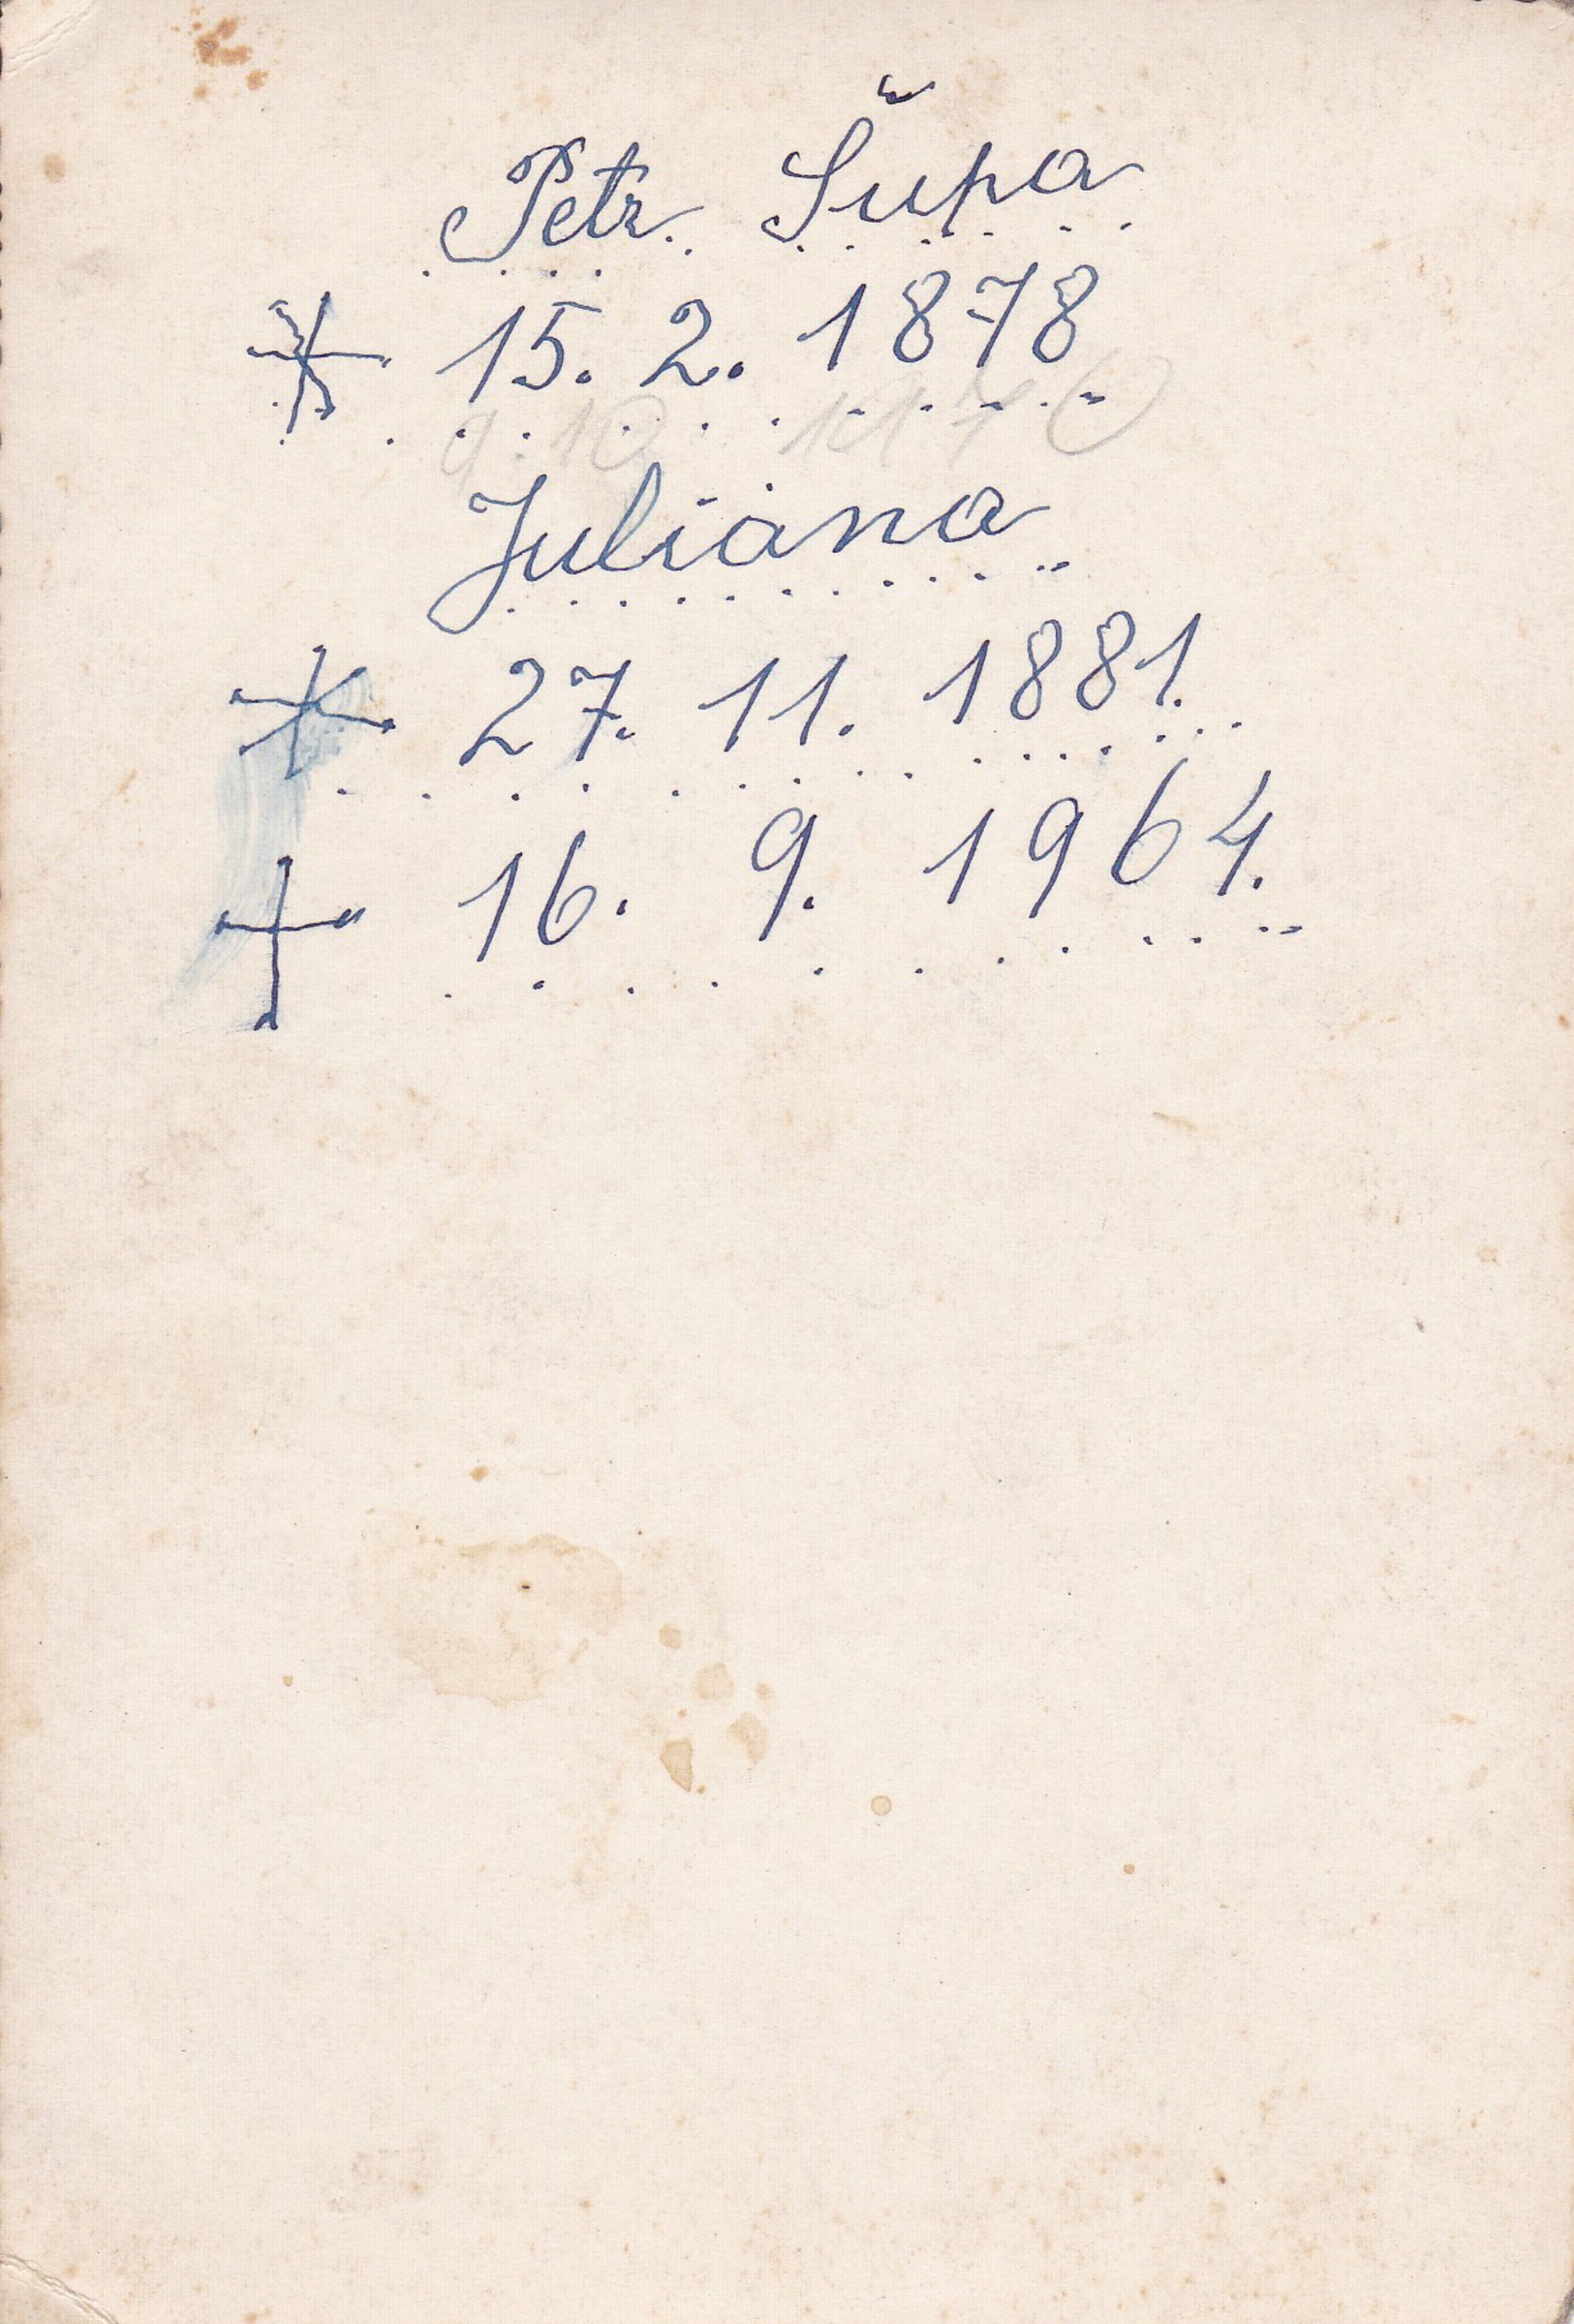 Petr Šupa
* 15. 2. 1878
Juliana
* 27. 11. 1881.
+ 16. 9. 1964.